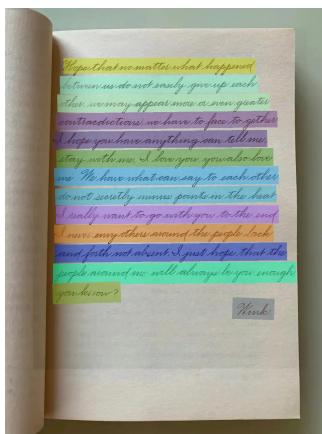 Hope that no matter what happened
between us do not easily give up each
other we may appear more a even greater
contradictions we have to face to gether
I hope you have anything can tell me,
stay with me. I love you you also love
me We have what can say to each other
do not secretly minus points in the heat
I really want to go with you to the end
I never envy others around the people back
and forth not absent. I just hope that the
people around me will always be you enough
you know?
Wink